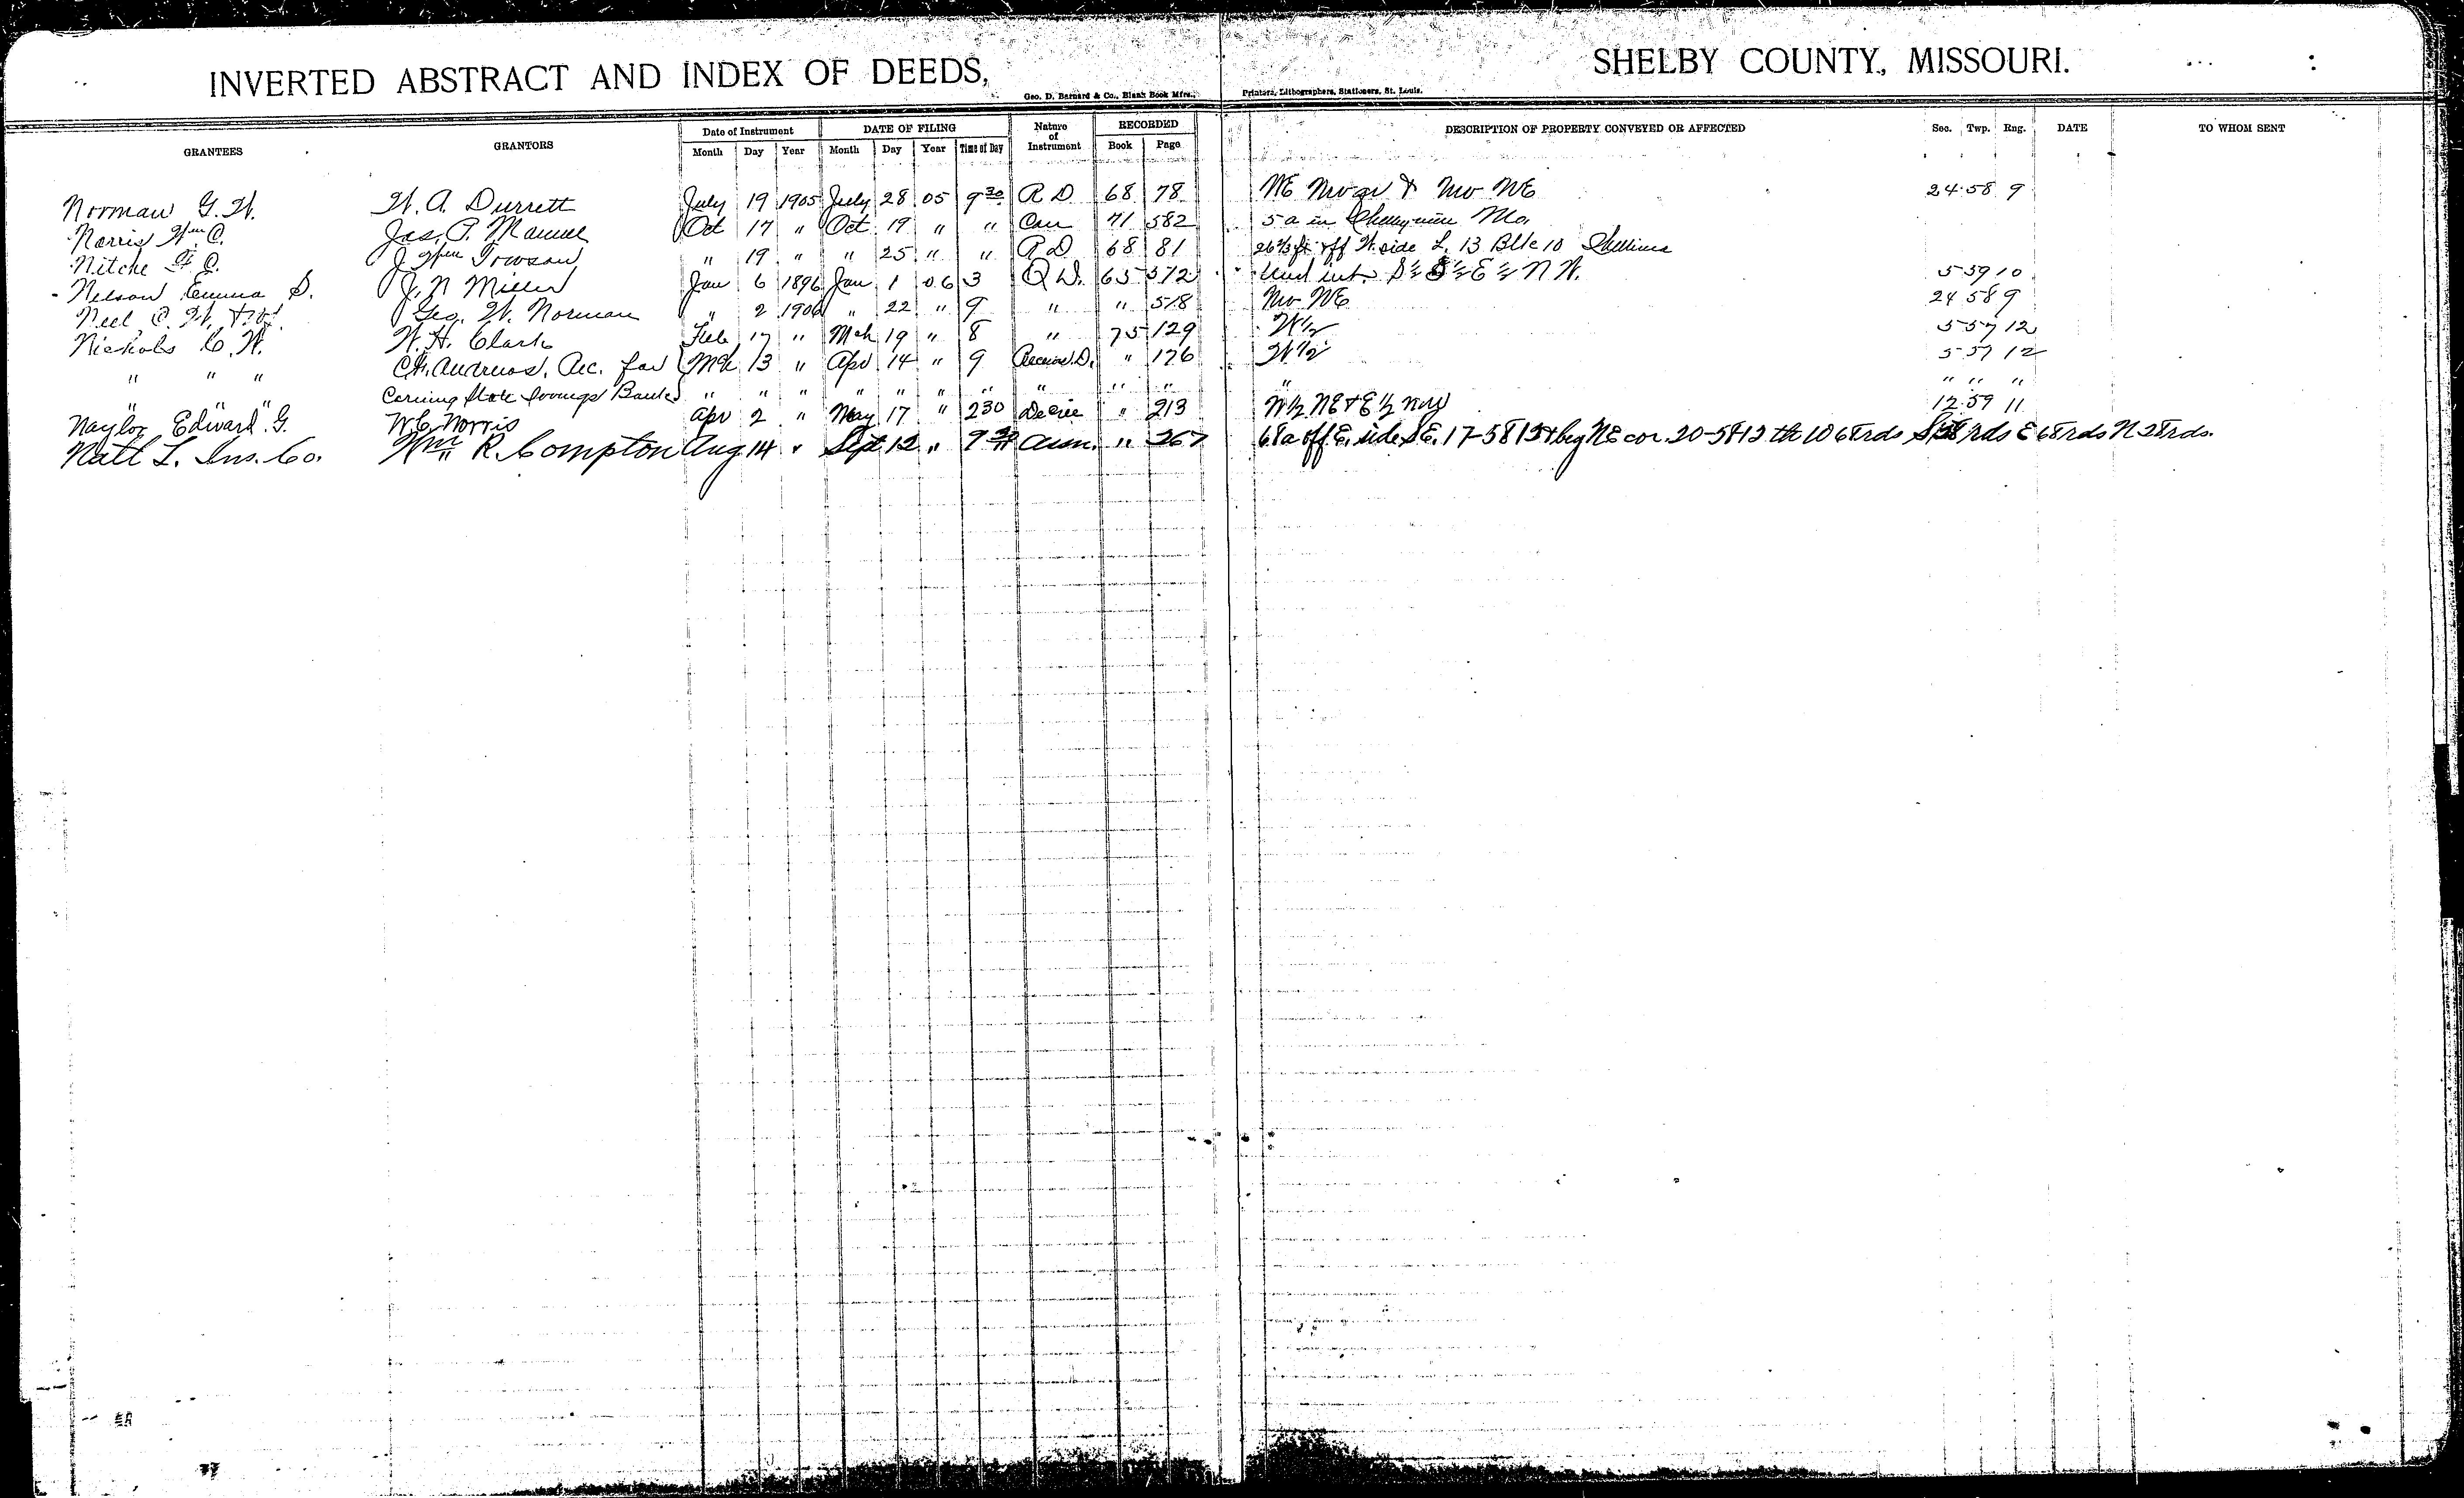 INVERTED ABSTRACT AND INDEX OF DEEDS, SHELBY COUNTY, MISSOURI.
Geo. D. Barnard & Co., Blank Book Mfrs., Printers, Lithographers, Stationers, St. Louis.
GRANTEES GRANTORS Date of Instrument DATE OF FILING Nature of Instrument RECORDED DESCRIPTION OF PROPERTY CONVEYED OR AFFECTED Sec. Twp. Rng. DATE TO WHOM SENT
Month Day Year Month Day Year Time of Day Book Page
Norman G. W. W. A. Durrett July 19 1905 July 28 05 9 30 R D 68 78 NE & NW NE 24 58 9
Norris Wm C. Jas. P. Manuel Oct 17 " Oct 19 " " 71 582 5 a in Mo.
Nitche J Wm Towson " 19 " " 25 " " R D 68 81 26 2/3 ft off W. side L. 13 Blk 10 Shelbina
Nelson Emma S. J. N Miller Jan 6 1896 Jan 1 06 3 Q D. 65 572 Und int. S ½ S ½ E ½ N W. 5 59 10
Neel C. W. Geo. W. Norman " 2 1906 " 22 " 9 " " 518 NW NE 24 58 9
Nichols C. W. W. H. Clark Feb 17 " Mch 19 " 8 " 75 129 W ½ 5 57 12
" " " C. H. Andrews, Rec. for Mch 13 " Apr 14 " 9 D. " 176 W ½ 5 57 12
" " " Corning State Savings Bank " " " " " " " " " " " " " "
Naylor Edward G. W C Norris Apr 2 " May 17 " 2 30 Decree " 213 W ½ NE & E ½ NW 12 59 11
Natl L. Ins. Co. Wm R. Compton Aug 14 " Sept 12 " Assn. " 267 68a off E. side SE. 17-58 12 & beg NE cor. 20-58 12 th W 68 rds S 28 rds E 68 rds N 28 rds.